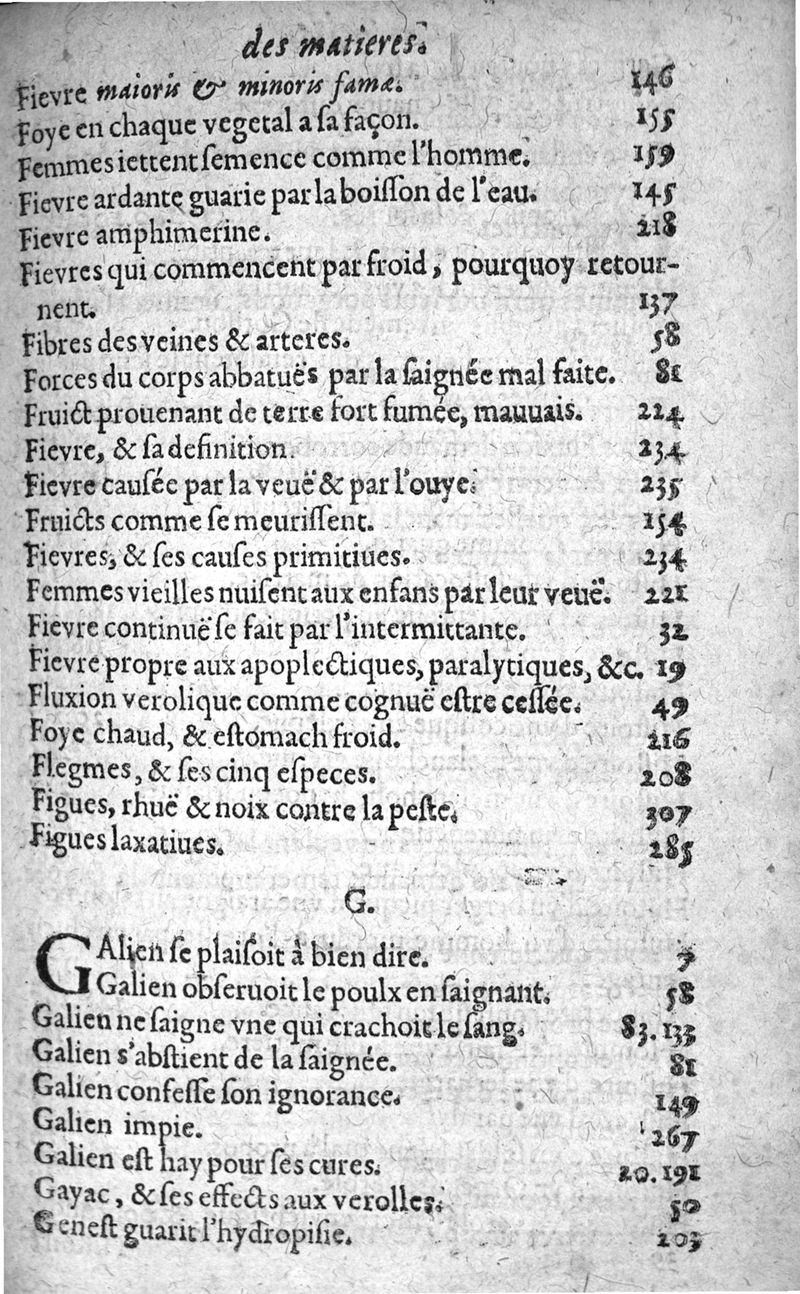 des matieres.
Fievre maioris & minoris famæ. 146
Foye en chaque vegetal a sa façon. 155
Femmes iettent semence comme l'homme. 159
Fievre ardante guarie par la boisson de l'eau. 145
Fievre amphimerine. 218
Fievres qui commencent par froid, pourquoy retour-
nent. 137
Fibres des veines & arteres. 58
Forces du corps abbatuës par la saignée mal faite. 81
Fruict prouenant de terre fort fumée, mauuais. 224
Fievre, & sa definition. 234
Fievre causée par la veuë & par l'ouye. 235
Fruicts comme se meurissent. 154
Fievres, & ses causes primitiues. 234
Femmes vieilles nuisent aux enfans par leur veuë. 221
Fievre continuë se fait par l'intermittante. 32
Fievre propre aux apoplectiques, paralytiques, &c. 19
Fluxion verolique comme cognuë estre cessée. 49
Foye chaud, & estomach froid. 216
Flegmes, & ses cinq especes. 208
Figues, rhuë & noix contre la peste. 307
Figues laxatiues. 285
G.
GAlien se plaisoit à bien dire. 7
Galien obseruoit le poulx en saignant. 58
Galien ne saigne vne qui crachoit le sang. 83.133
Galien s'abstient de la saignée. 81
Galien confesse son ignorance. 149
Galien impie. 267
Galien est hay pour ses cures. 20.191
Gayac, & ses effects aux verolles. 50
Genest guarit l'hydropisie. 203